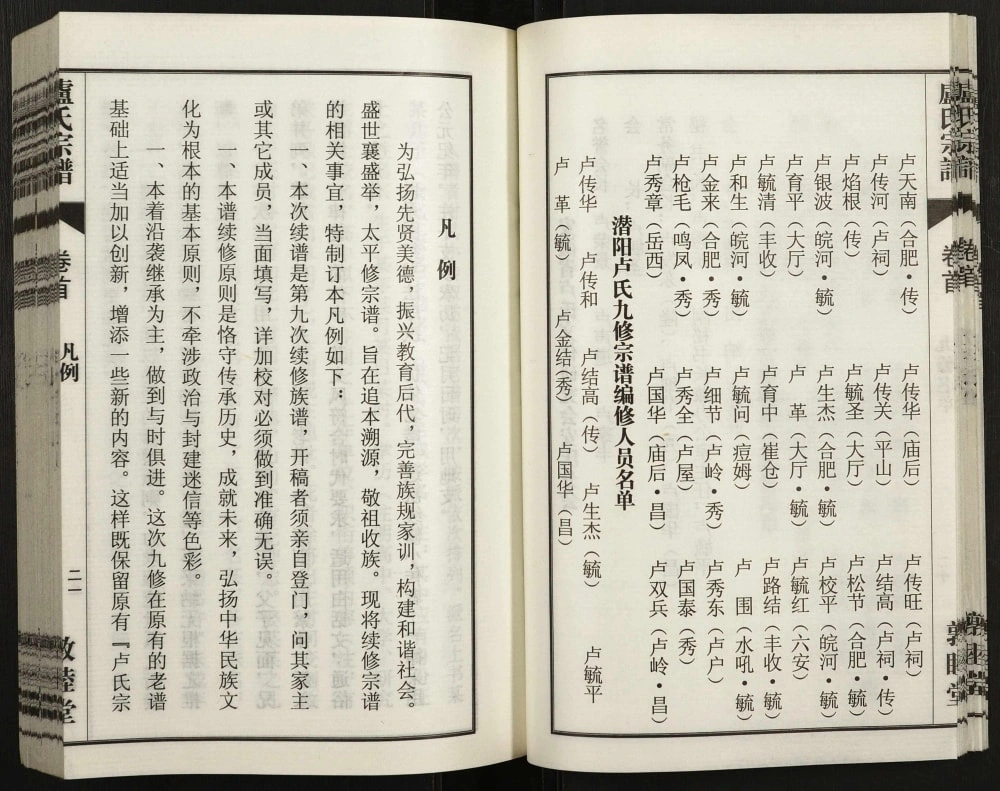 盧氏宗譜
卷首
敦睦堂
卢天南（合肥·传）　卢传华（庙后）　卢传旺（卢祠）
卢传河（卢祠）　卢传关（平山）　卢结高（卢祠·传）
卢焰根（传）　卢毓圣（大厅）　卢松节（合肥·毓）
卢银波（皖河·毓）　卢生杰（合肥·毓）　卢校平（皖河·毓）
卢育平（大厅）　卢　革（大厅·毓）　卢毓红（六安）
卢毓清（丰收）　卢育中（崔仓）　卢路结（丰收·毓）
卢和生（皖河·毓）　卢毓问（痘姆）　卢　围（水吼·毓）
卢金来（合肥·秀）　卢细节（卢岭·秀）　卢秀东（卢户）
卢枪毛（鸣凤·秀）　卢秀全（卢屋）　卢国泰（秀）
卢秀章（岳西）　卢国华（庙后·昌）　卢双兵（卢岭·昌）
潜阳卢氏九修宗谱编修人员名单
卢传华　卢传和　卢结高（传）　卢生杰（毓）　卢毓平
卢　革（毓）　卢金结（秀）　卢国华（昌）
凡例
为弘扬先贤美德，振兴教育后代，完善族规家训，构建和谐社会。
盛世襄盛举，太平修宗谱。旨在追本溯源，敬祖收族。现将续修宗谱
的相关事宜，特制订本凡例如下：
一、本次续谱是第九次续修族谱，开稿者须亲自登门，问其家主
或其它成员，当面填写，详加校对必须做到准确无误。
一、本谱续修原则是恪守传承历史，成就未来，弘扬中华民族文
化为根本的基本原则，不牵涉政治与封建迷信等色彩。
一、本着沿袭继承为主，做到与时俱进。这次九修在原有的老谱
基础上适当加以创新，增添一些新的内容。这样既保留原有『卢氏宗
盧氏宗譜
卷首
凡例
二一
敦睦堂